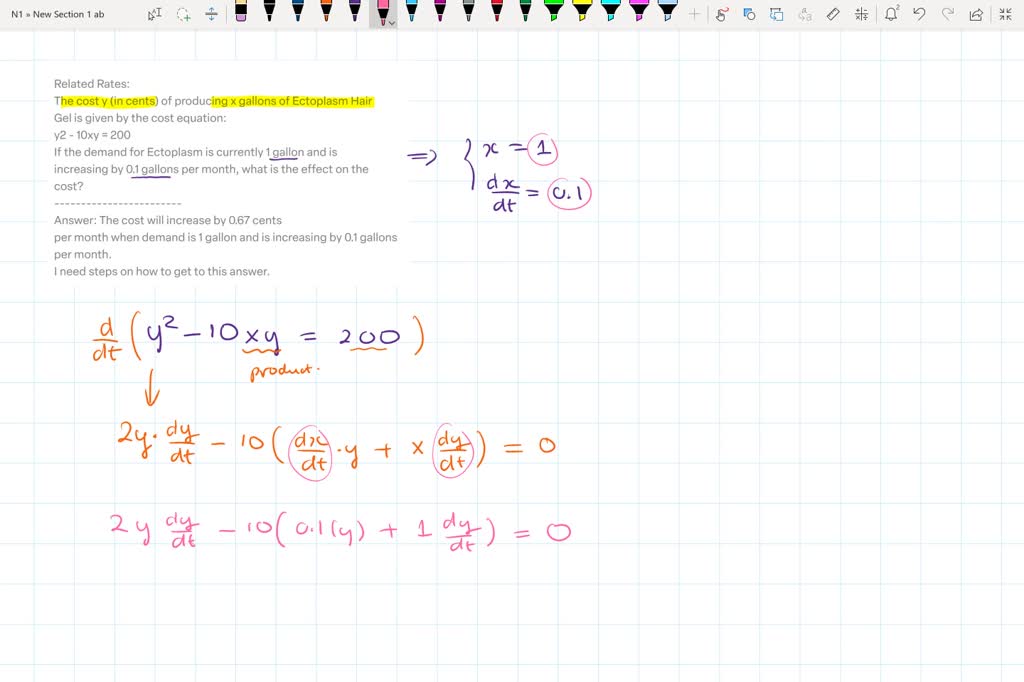 N1 » New Section 1 ab
Related Rates:
The cost y (in cents) of producing x gallons of Ectoplasm Hair
Gel is given by the cost equation:
y2 - 10xy = 200
If the demand for Ectoplasm is currently 1 gallon and is
increasing by 0.1 gallons per month, what is the effect on the
cost?
------------------------
Answer: The cost will increase by 0.67 cents
per month when demand is 1 gallon and is increasing by 0.1 gallons
per month.
I need steps on how to get to this answer.
⇒ { x = 1
dx/dt = 0.1
d/dt (y² - 10xy = 200)
product.
2y · dy/dt - 10(dx/dt · y + x dy/dt) = 0
2y dy/dt - 10(0.1(y) + 1 dy/dt) = 0